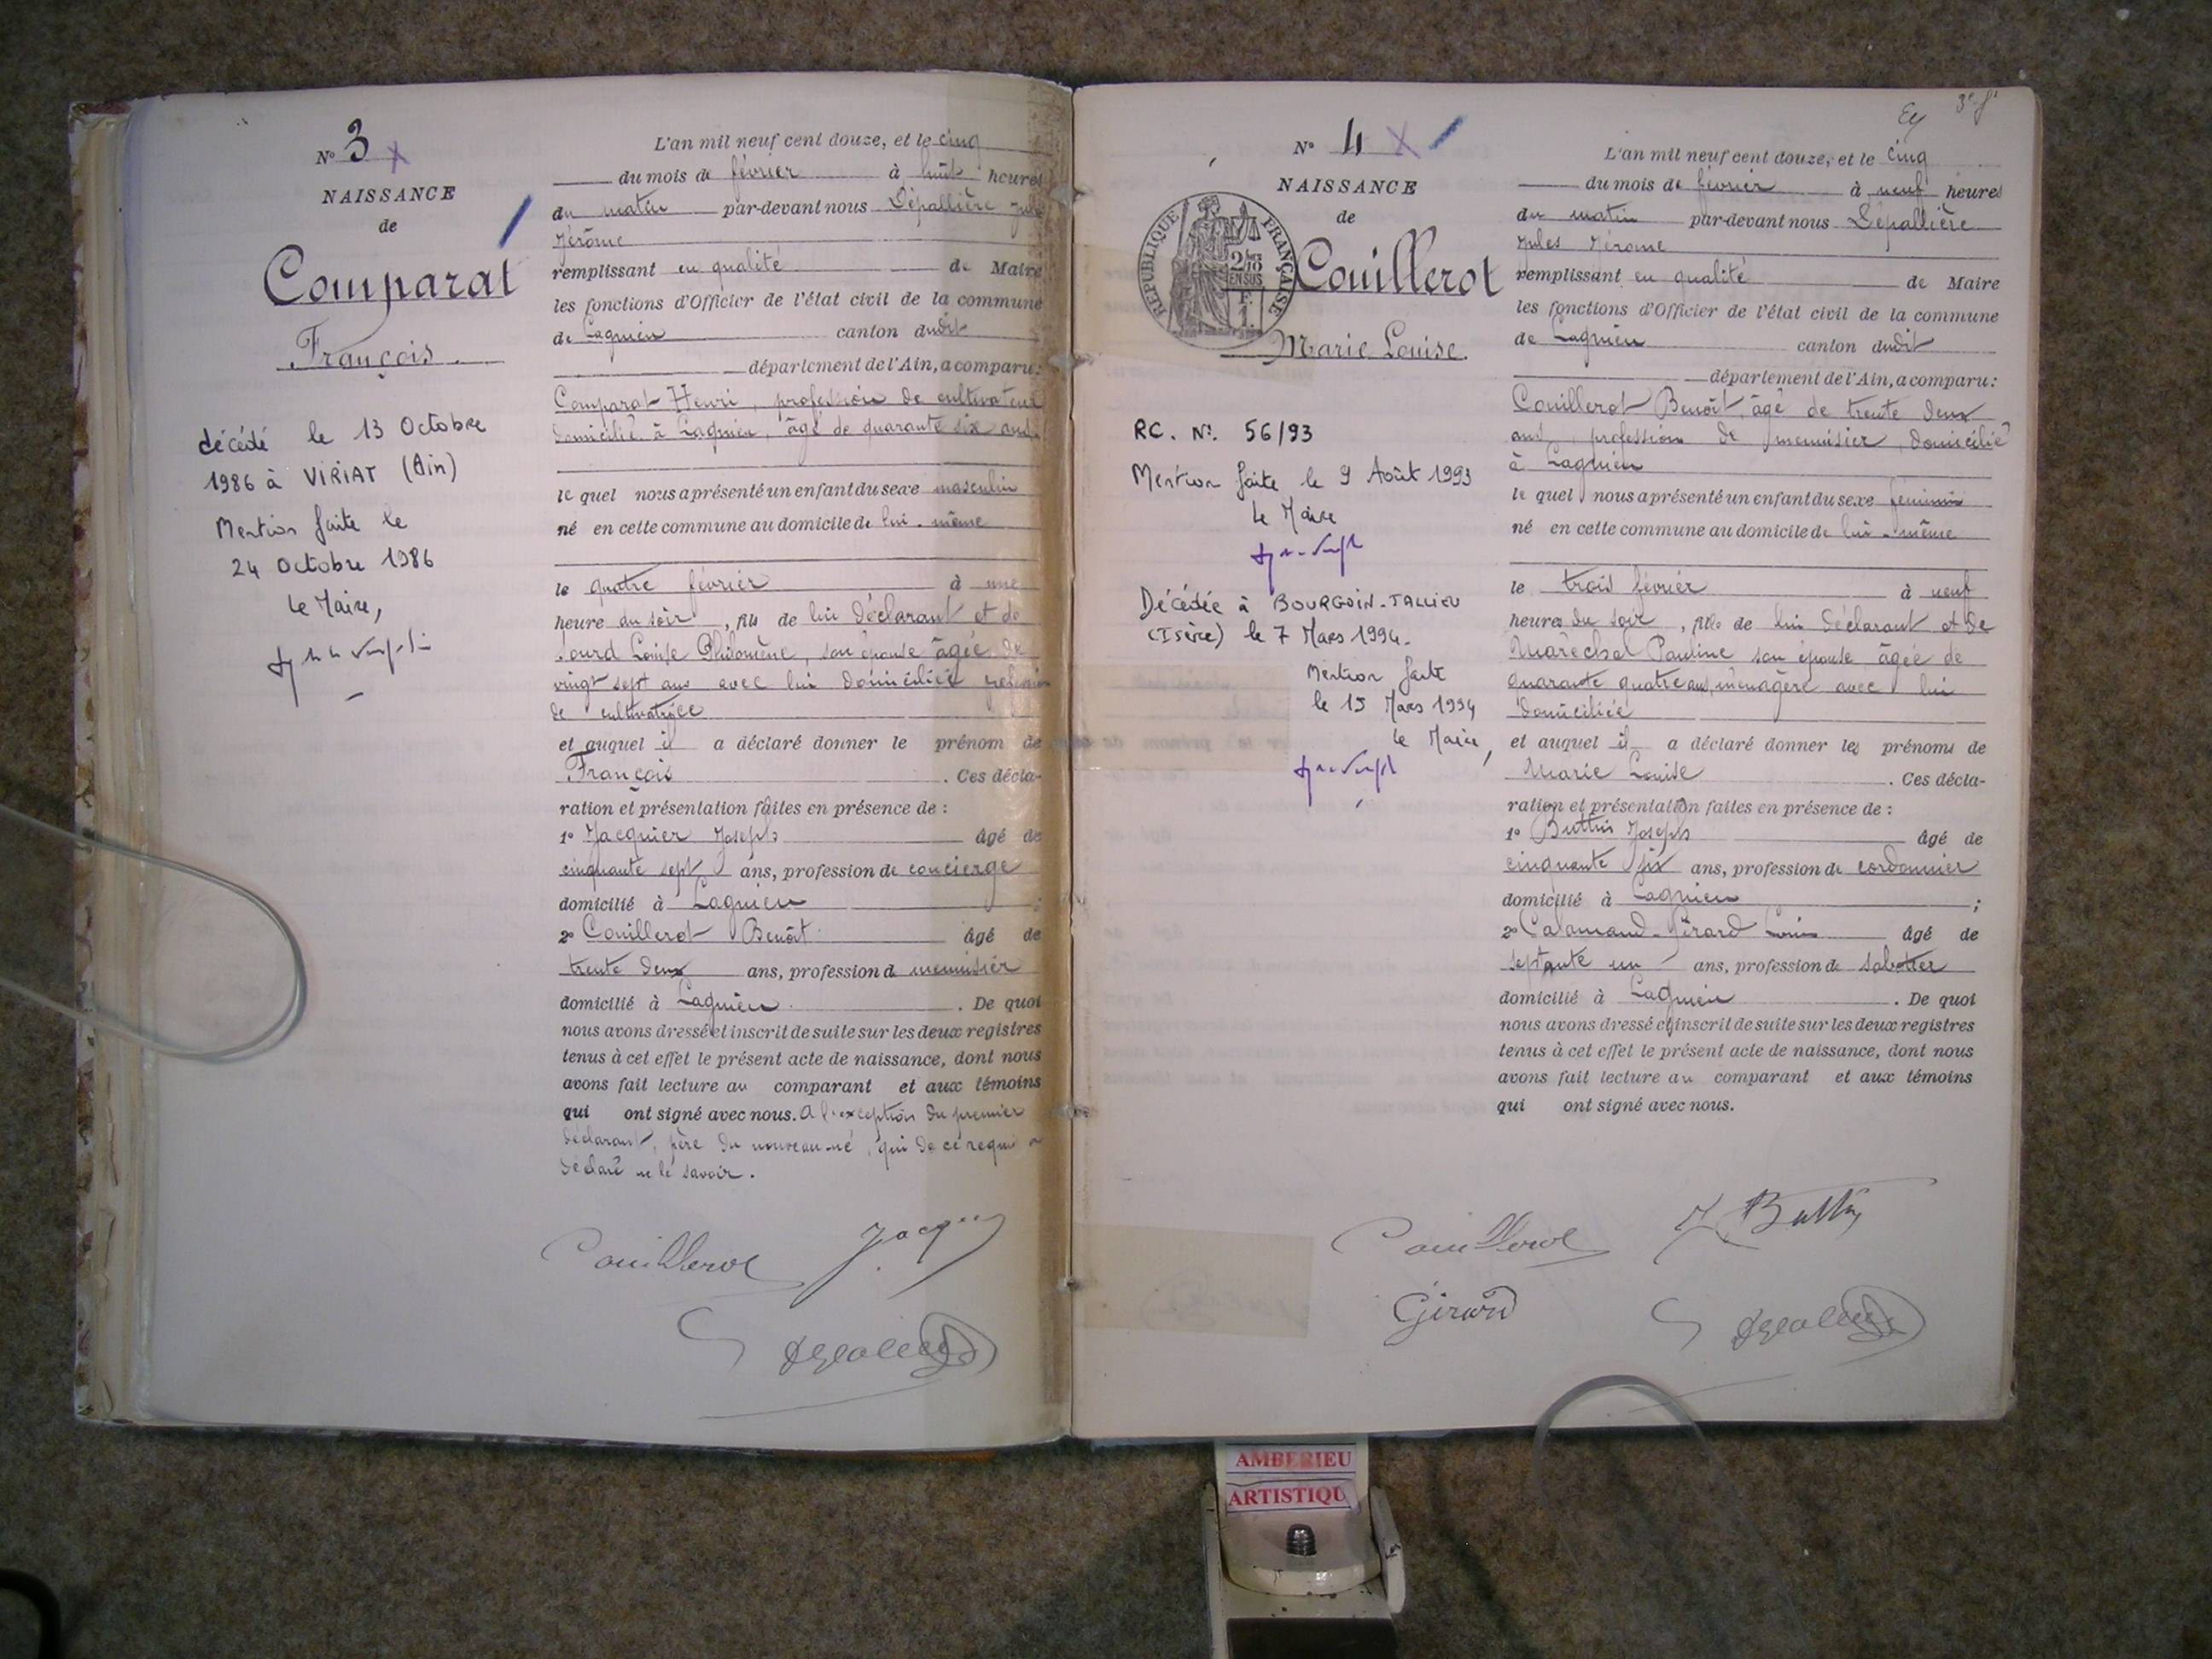 N° 3
NAISSANCE
de
Comparat
François
décédé le 13 Octobre
1986 à VIRIAT (Ain)
Mention faite le
24 Octobre 1986
Le Maire,
L'an mil neuf cent douze, et le cinq
du mois de février à huit heures
du matin par-devant nous Dépallière Jules
Jérôme
remplissant en qualité de Maire
les fonctions d'Officier de l'état civil de la commune
de Lagnieu canton dudit
département de l'Ain, a comparu:
Comparat Henri, profession de cultivateur
domicilié à Lagnieu, âgé de quarante six ans
le quel nous a présenté un enfant du sexe masculin
né en cette commune au domicile de lui-même
le quatre février à une
heure du soir, fils de lui déclarant et de
Louise Philomène, son épouse âgée de
vingt sept ans avec lui domiciliée
de cultivatrice
et auquel il a déclaré donner le prénom de
François. Ces décla-
ration et présentation faites en présence de :
1° Jacquier Joseph âgé de
cinquante sept ans, profession de concierge
domicilié à Lagnieu ;
2° Couillerot Benoît âgé de
trente deux ans, profession de menuisier
domicilié à Lagnieu. De quoi
nous avons dressé et inscrit de suite sur les deux registres
tenus à cet effet le présent acte de naissance, dont nous
avons fait lecture au comparant et aux témoins
qui ont signé avec nous. A l'exception du premier
déclarant, père du nouveau-né, qui de ce requis a
déclaré ne le savoir.
Couillerot
3e f
N° 4
NAISSANCE
de
RÉPUBLIQUE FRANÇAISE
2/10
EN SUS
F.
1.
Couillerot
Marie Louise.
RC. N°. 56/93
Mention faite le 9 Août 1993
Le Maire
Décédée à BOURGOIN-JALLIEU
(Isère) le 7 Mars 1994.
Mention faite
le 15 Mars 1994
Le Maire,
L'an mil neuf cent douze, et le cinq
du mois de février à neuf heures
du matin par-devant nous Dépallière
Jules Jérome
remplissant en qualité de Maire
les fonctions d'Officier de l'état civil de la commune
de Lagnieu canton dudit
département de l'Ain, a comparu:
Couillerot Benoît, âgé de trente deux
ans, profession de menuisier, domicilié
à Lagnieu
le quel nous a présenté un enfant du sexe féminin
né en cette commune au domicile de lui-même
le trois février à neuf
heures du soir, fille de lui déclarant et de
Maréchal Pauline son épouse âgée de
quarante quatre ans, ménagère avec lui
domiciliée
et auquel il a déclaré donner les prénoms de
Marie Louise. Ces décla-
ration et présentation faites en présence de :
1° Buttin Joseph âgé de
cinquante six ans, profession de cordonnier
domicilié à Lagnieu ;
2° Calamand-Girard Louis âgé de
septante un ans, profession de sabotier
domicilié à Lagnieu. De quoi
nous avons dressé et inscrit de suite sur les deux registres
tenus à cet effet le présent acte de naissance, dont nous
avons fait lecture au comparant et aux témoins
qui ont signé avec nous.
Couillerot J. Buttin
Girard
AMBERIEU
ARTISTIQU